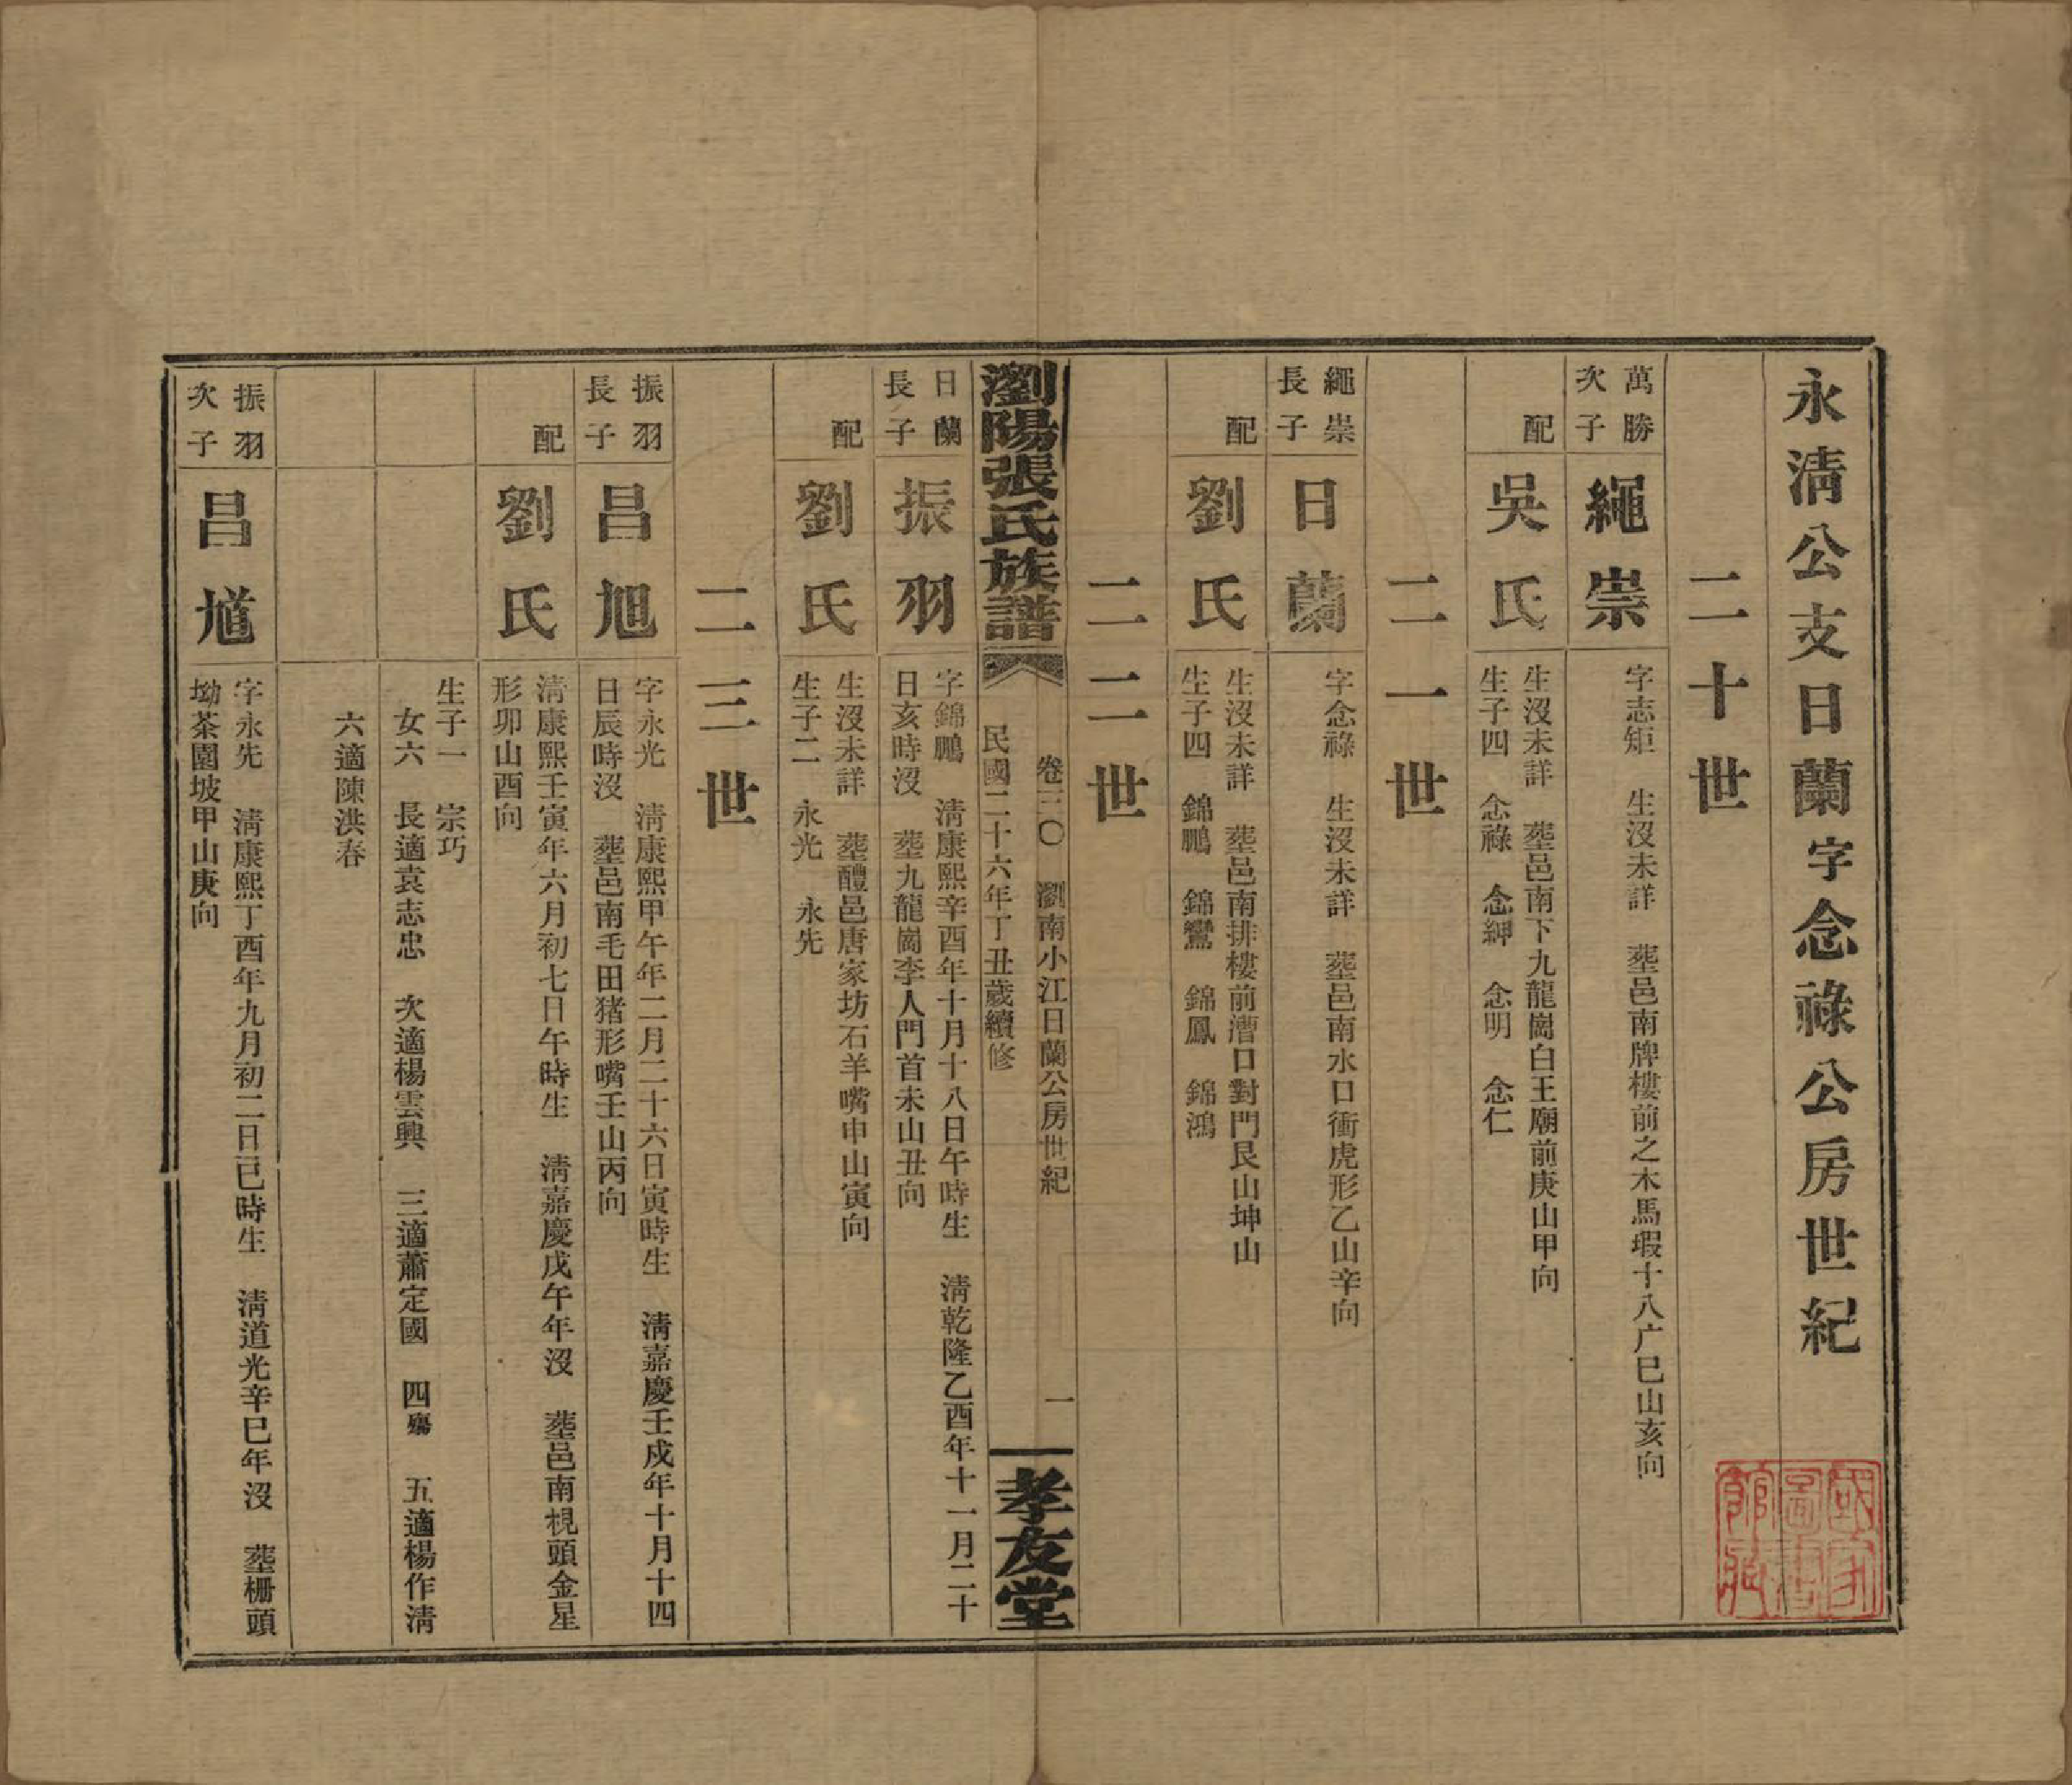 永清公支日蘭字念祿公房世紀
二十世
萬勝
次子
繩崇
字志矩 生沒未詳 塟邑南牌樓前之木馬塅十八广巳山亥向
配
吳氏
生沒未詳 塟邑南下九龍崗白王廟前庚山甲向
生子四 念祿 念紳 念明 念仁
二一世
繩崇
長子
日蘭
字念祿 生沒未詳 塟邑南水口衝虎形乙山辛向
配
劉氏
生沒未詳 塟邑南排樓前漕口對門艮山坤山
生子四 錦鵬 錦鸞 錦鳳 錦鴻
二二世
瀏陽張氏族譜
卷三〇 瀏南小江日蘭公房世紀 一
民國二十六年丁丑歲續修
孝友堂
日蘭
長子
振羽
字錦鵬 清康熙辛酉年十月十八日午時生 清乾隆乙酉年十一月二十
日亥時沒 塟九龍崗李人門首未山丑向
配
劉氏
生沒未詳 塟醴邑唐家坊石羊嘴申山寅向
生子二 永光 永先
二三世
振羽
長子
昌旭
字永光 清康熙甲午年二月二十六日寅時生 清嘉慶壬戌年十月十四
日辰時沒 塟邑南毛田猪形嘴壬山丙向
配
劉氏
清康熙壬寅年六月初七日午時生 清嘉慶戊午年沒 塟邑南梘頭金星
形卯山酉向
生子一 宗巧
女六 長適袁志忠 次適楊雲興 三適蕭定國 四殤 五適楊作清
六適陳洪春
振羽
次子
昌馗
字永先 清康熙丁酉年九月初二日巳時生 清道光辛巳年沒 塟柵頭
坳茶園坡甲山庚向
國家圖書館藏